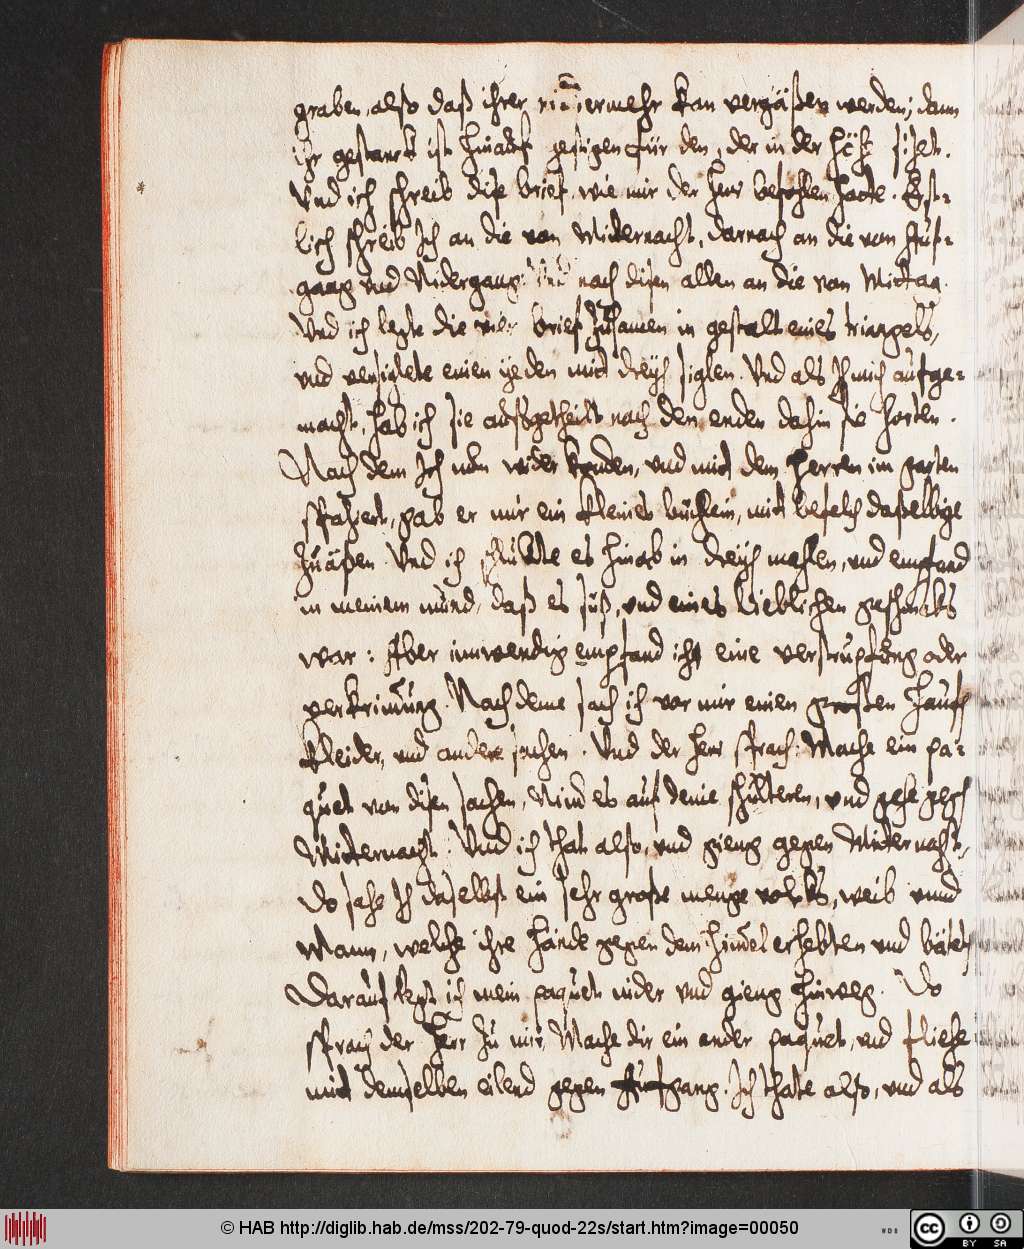 graben, also daß ihrer nim̄ermehr kan vergäßen werden; dann
ihr gestanck ist hinauf gestigen für den, der in der höh sizet.
Und ich schreib dise brief, wie mir der herr befohlen hatte. Erst-
lich schreib Ich an die von Mitternacht, darnach an die vom Auf-
gang vnd Nidergang: Und nach disen allen an die von Mittag.
Und ich legte die vier brief zusamen in gestalt eines triangels,
vnd versiglete einen yeden mit dreÿ siglen. Und als Ich mich aufge-
macht, hab ich sie außgetheilt nach den enden dahin sie horten.
Nach dem Ich nun wider kom̄en, vnd mit dem Herren im garten
spatziert, gab er mir ein kleines büchlein, mit befelch daßelbige
zu äßen. Und ich schlukte es hinab in dreÿ mahlen, vnd empfand
in meinem mund, daß es süß, vnd eines lieblichen geschmaks
war: Aber innwendig empfand ich eine verstrupfung oder
verkrim̄ung. Nach deme sach ich vor mir einen großen hauffen
kleider, vnd andere sachen. Und der herr sprach: Mache ein pa-
quet von disen sachen, Nim̄ es auf deine schulteren, vnd gehe gegen
Mitternacht. Und ich that also, vnd gieng gegen Mitternacht,
Do sahe Ich daselbst ein sehr große menge volks, weib vnnd
Mann, welche ihre hände gegen dem him̄el erhebten vnd bäteten
Darauf legt ich mein paquet nider vnd gieng hinweg. Do
sprach der Herr zu mir, Mache dir ein ander paquet, vnd fliehe
mit demselben eilend gegen Aufgang. Ich thate also, vnd als
© HAB http://diglib.hab.de/mss/202-79-quod-22s/start.htm?image=00050
WDB
CC BY SA